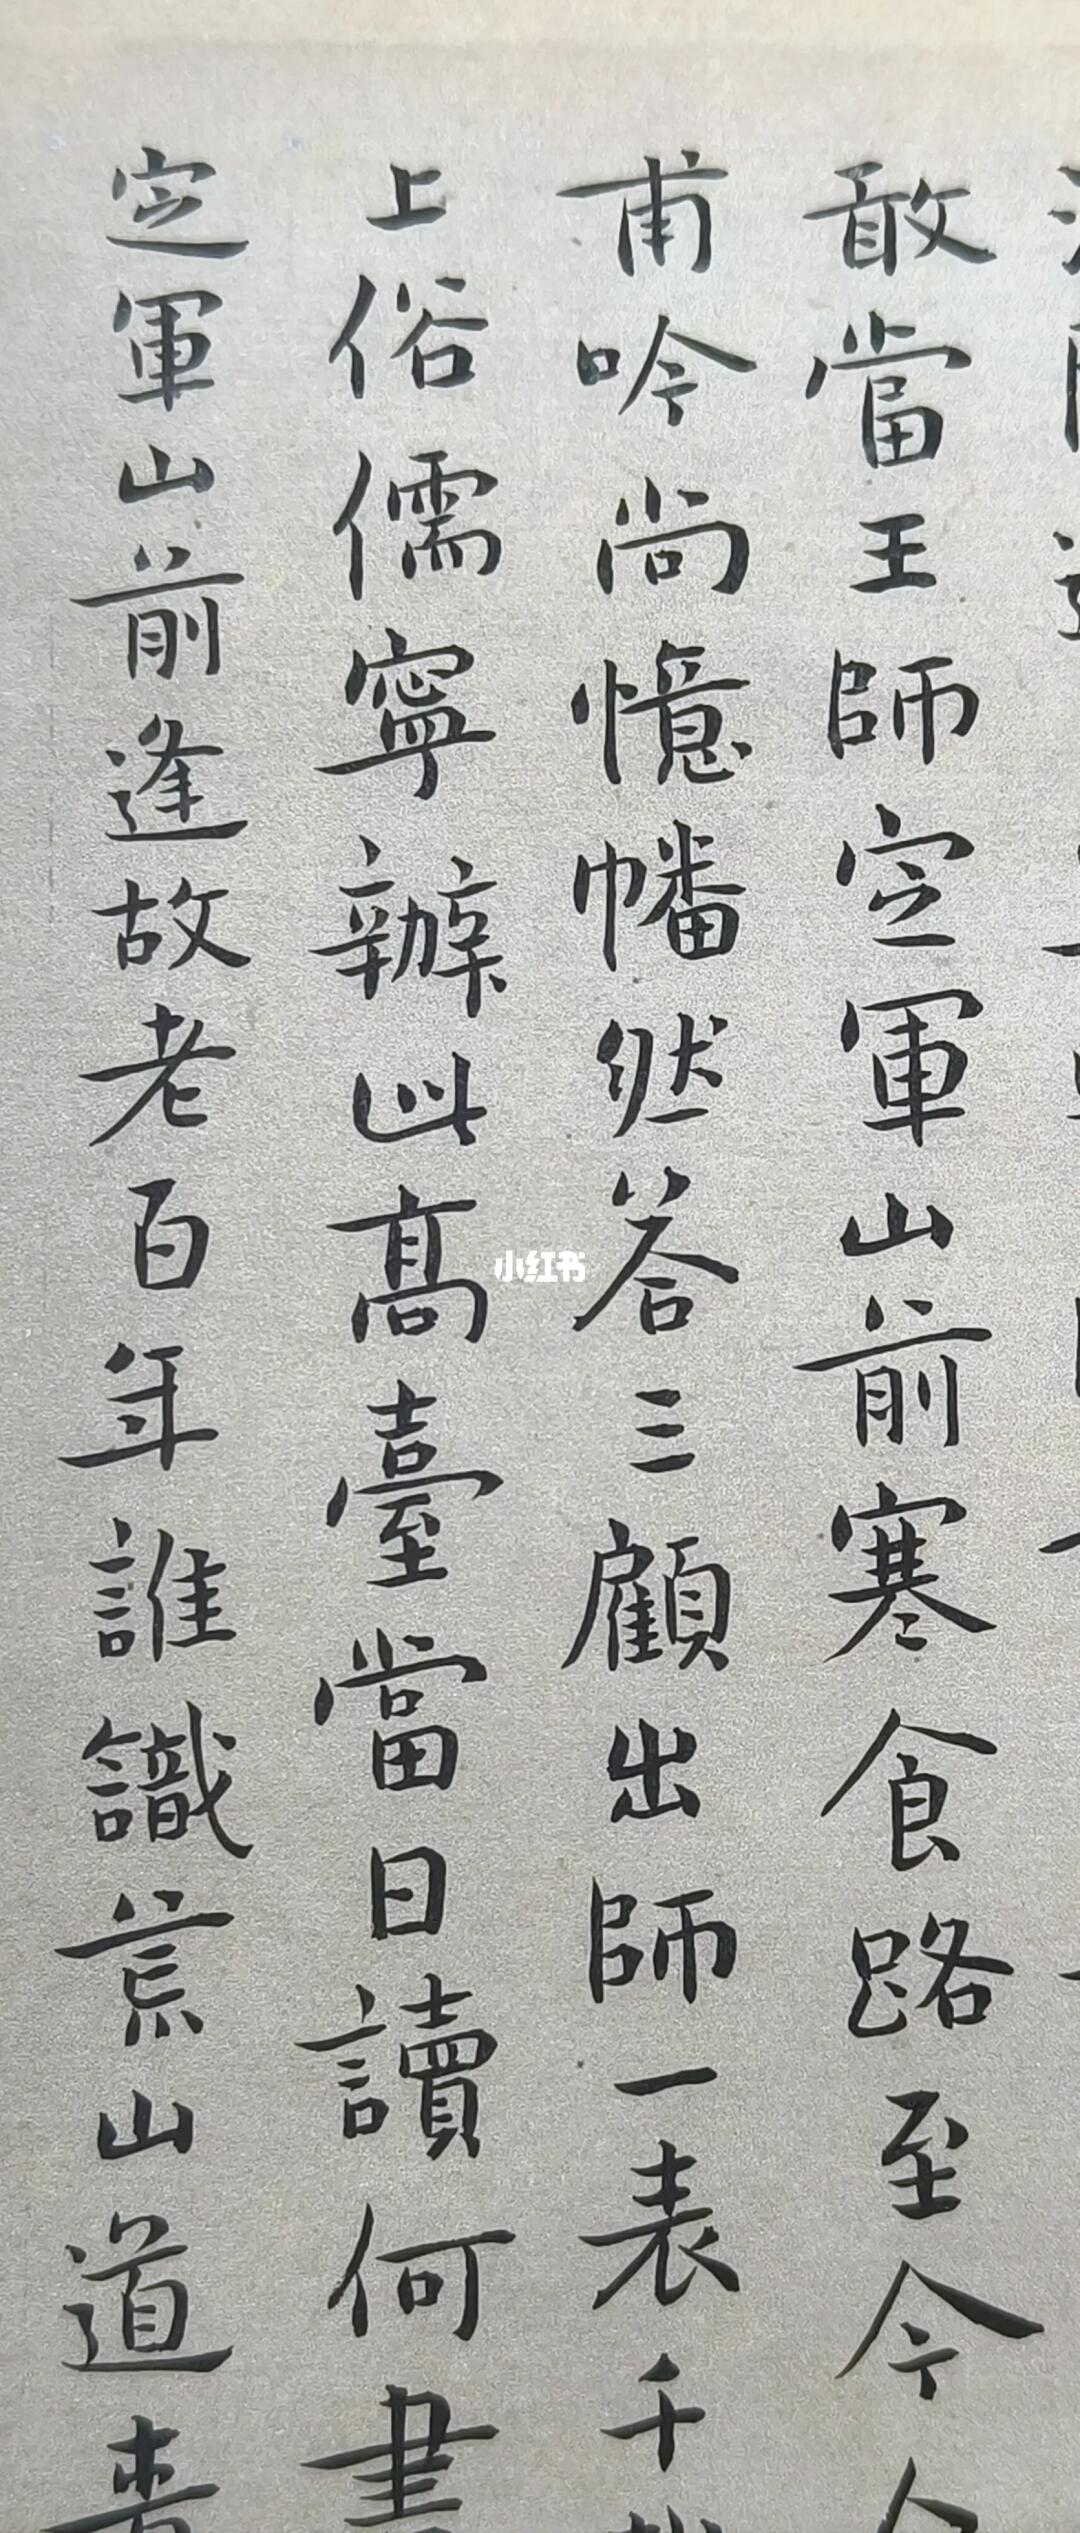 敢當王師定軍山前寒食路至今
甫吟尚憶幡然答三顧出師一表千
上俗儒寧辦此高臺當日讀何書
定軍山前逢故老百年誰識荒山道
小红书